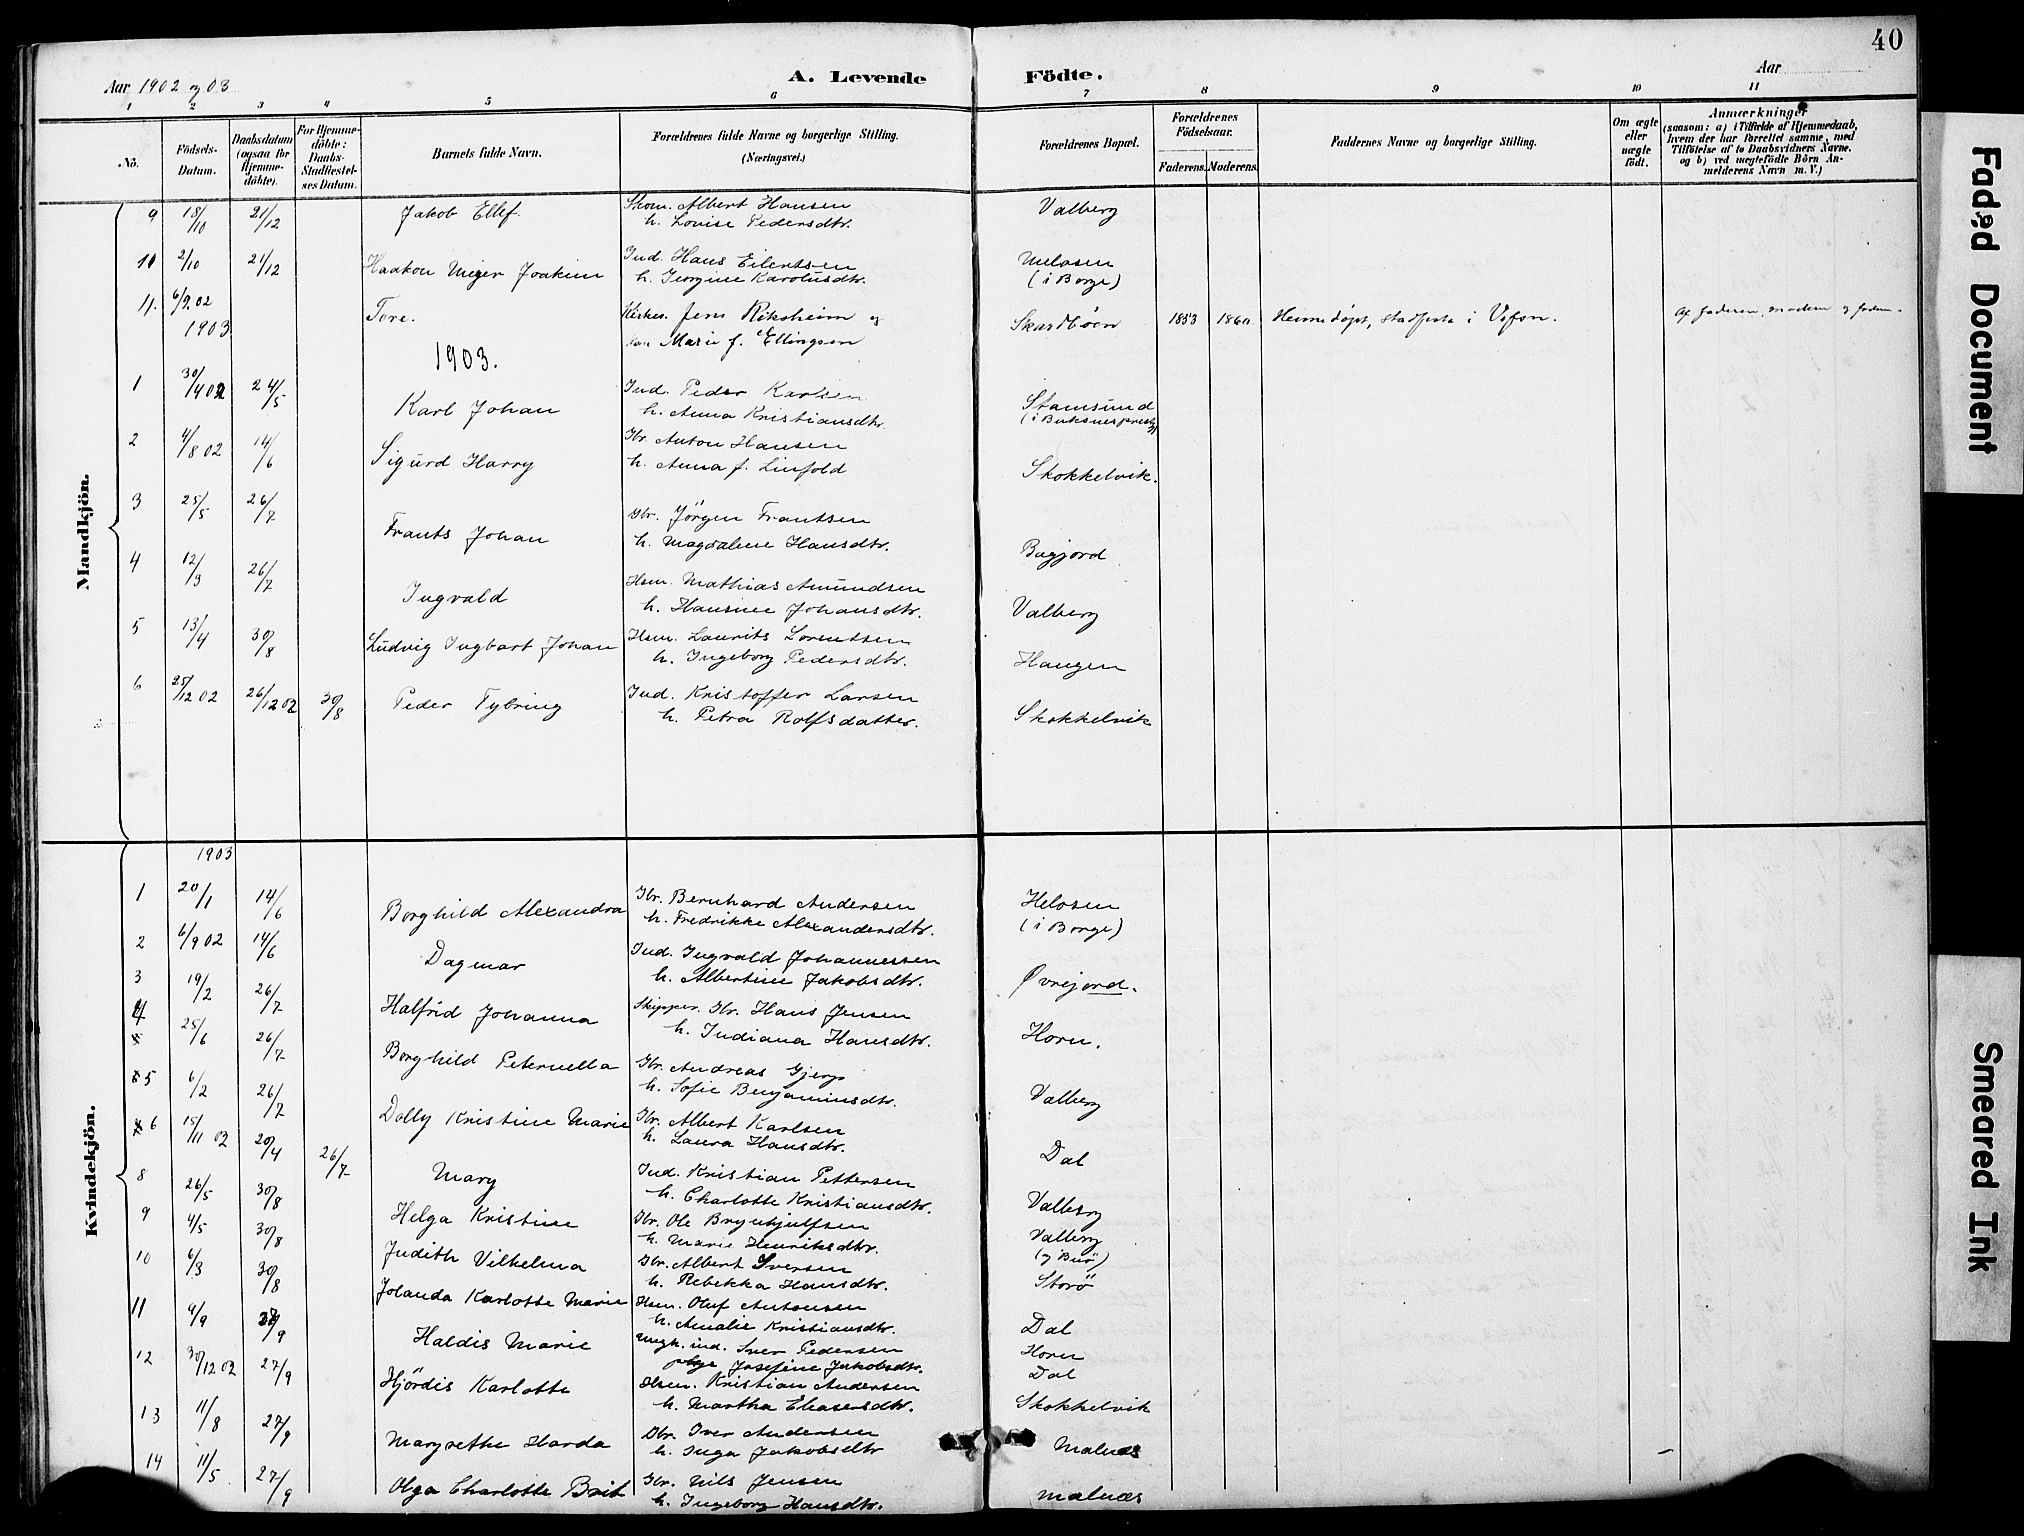 40
Aar 1902 og 03
A. Levende Födte.
Aar
1 2 3 4 5 6 7 8 9 10 11
No.
Födsels-Datum.
Daabsdatum (ogsaa for Hjemme-döbte).
For Hjemme-döbte: Daabs-Stadfæstel-ses Datum.
Barnets fulde Navn.
Forældrenes fulde Navne og borgerlige Stilling. (Næringsvei.)
Forældrenes Bopæl.
Forældrenes Födselsaar.
Faderens. Moderens.
Faddernes Navne og borgerlige Stilling.
Om ægte eller uægte født.
Anmærkninger
(saasom: a) i Tilfælde af Hjemmedaab,
hvem der har forrettet samme, med
Tilföielse af to Daabsvidners Navne.
og b) ved uægtefödte Börn An-
melderens Navn m. V.)
Mandkjön.
9 18/10 21/12 Jakob Ellef. Skom. Albert Hansen Valberg
h. Louise Pedersdtr.
10 2/10 21/12 Haakon Meyer Joakim Ind. Hans Eilertsen
h. Georgine Karolusdtr. (i Borge)
11. 6/9 02 Tore. Kirkes. Jens Riksheim og Skardböen 1853 1860 Heimedøpt, stadfesta i Vefsn.
Marie f. Ellingsen
1903
1903.
1 30/4 02 24/5 Karl Johan Ind. Peder Karlsen Stamsund
h. Anna Kristiansdtr.
2 4/8 02 14/6 Sigurd Harry Gbr. Anton Hansen Skokkelvik.
h. Anna f. Linfold
3 25/5 26/7 Frants Johan Gbr. Jörgen Frantsen Bugjord
h. Magdalene Hansdtr.
4 12/3 26/7 Ingvald Hsm. Mathias Amundsen Valberg
h. Hansine Johansdtr.
5 13/4 30/8 Ludvig Ingbart Johan Hsm. Laurits Lorentsen Haugen
h. Ingeborg Pedersdtr.
6 25/12 02 26/12 02 30/8 Peder Tybring Ind. Kristoffer Larsen Skokkelvik
h. Petra Rolfsdatter.
Kvindekjön.
1903
1 20/1 14/6 Borghild Alexandra Gbr. Bernhard Andersen Helosen
h. Fredrikke Alexandersdtr. (i Borge)
2 6/9 02 14/6 Dagmar Ind. Ingvald Johannessen Øvrejord.
h. Albertine Jakobsdtr.
3 19/2 26/7 Halfrid Johanna Skipper. Gbr. Hans Jensen Horn.
h. Indiana Hansdtr.
4 25/6 26/7 Borghild Peternella Gbr. Andreas Gjerp Valberg
h. Sofie Benjaminsdtr.
5 6/2 26/7 Dolly Kristine Marie Gbr. Albert Karlsen Dal
h. Laura Hansdtr.
6 15/11 02 20/4 26/7 Mary Ind. Kristian Pettersen Valberg
h. Charlotte Kristiansdtr.
8 26/5 30/8 Helga Kristine Gbr. Ole Brynhjulfsen Valberg
h. Marie Henriksdtr.
9 4/5 30/8 Judith Vilhelma Gbr. Albert Iversen Storö
h. Rebekka Hansdtr.
10 6/3 30/8 Jolanda Karlotte Marie Hsm. Oluf Antonsen Dal
h. Amalie Kristiansdtr.
11 4/9 Haldis Marie Ungk. ind. Iver Pedersen Horn
pige Josefine Jakobsdtr. Dal
12 30/12 02 27/9 Hjördis Karlotte Hsm. Kristian Andersen Skokkelvik
h. Martha Eleasersdtr.
13 11/8 27/9 Margrethe Harda Gbr. Iver Andersen Malnæs
h. Inga Jakobsdtr
14 11/5 27/9 Olga Charlotte Brit Gbr. Nils Jensen Malnæs
h. Ingeborg Hansdtr.
Faded Document
Smeared Ink